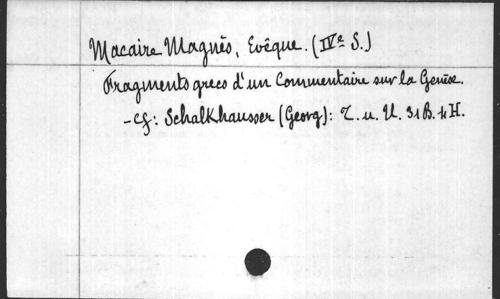 Macaire Magnès, Evêque. (IVe S.)
Fragments grecs d'un Commentaire sur la Genèse.
- cf: Schalkhausser (Georg): T. u. U. 31 B. 4 H.